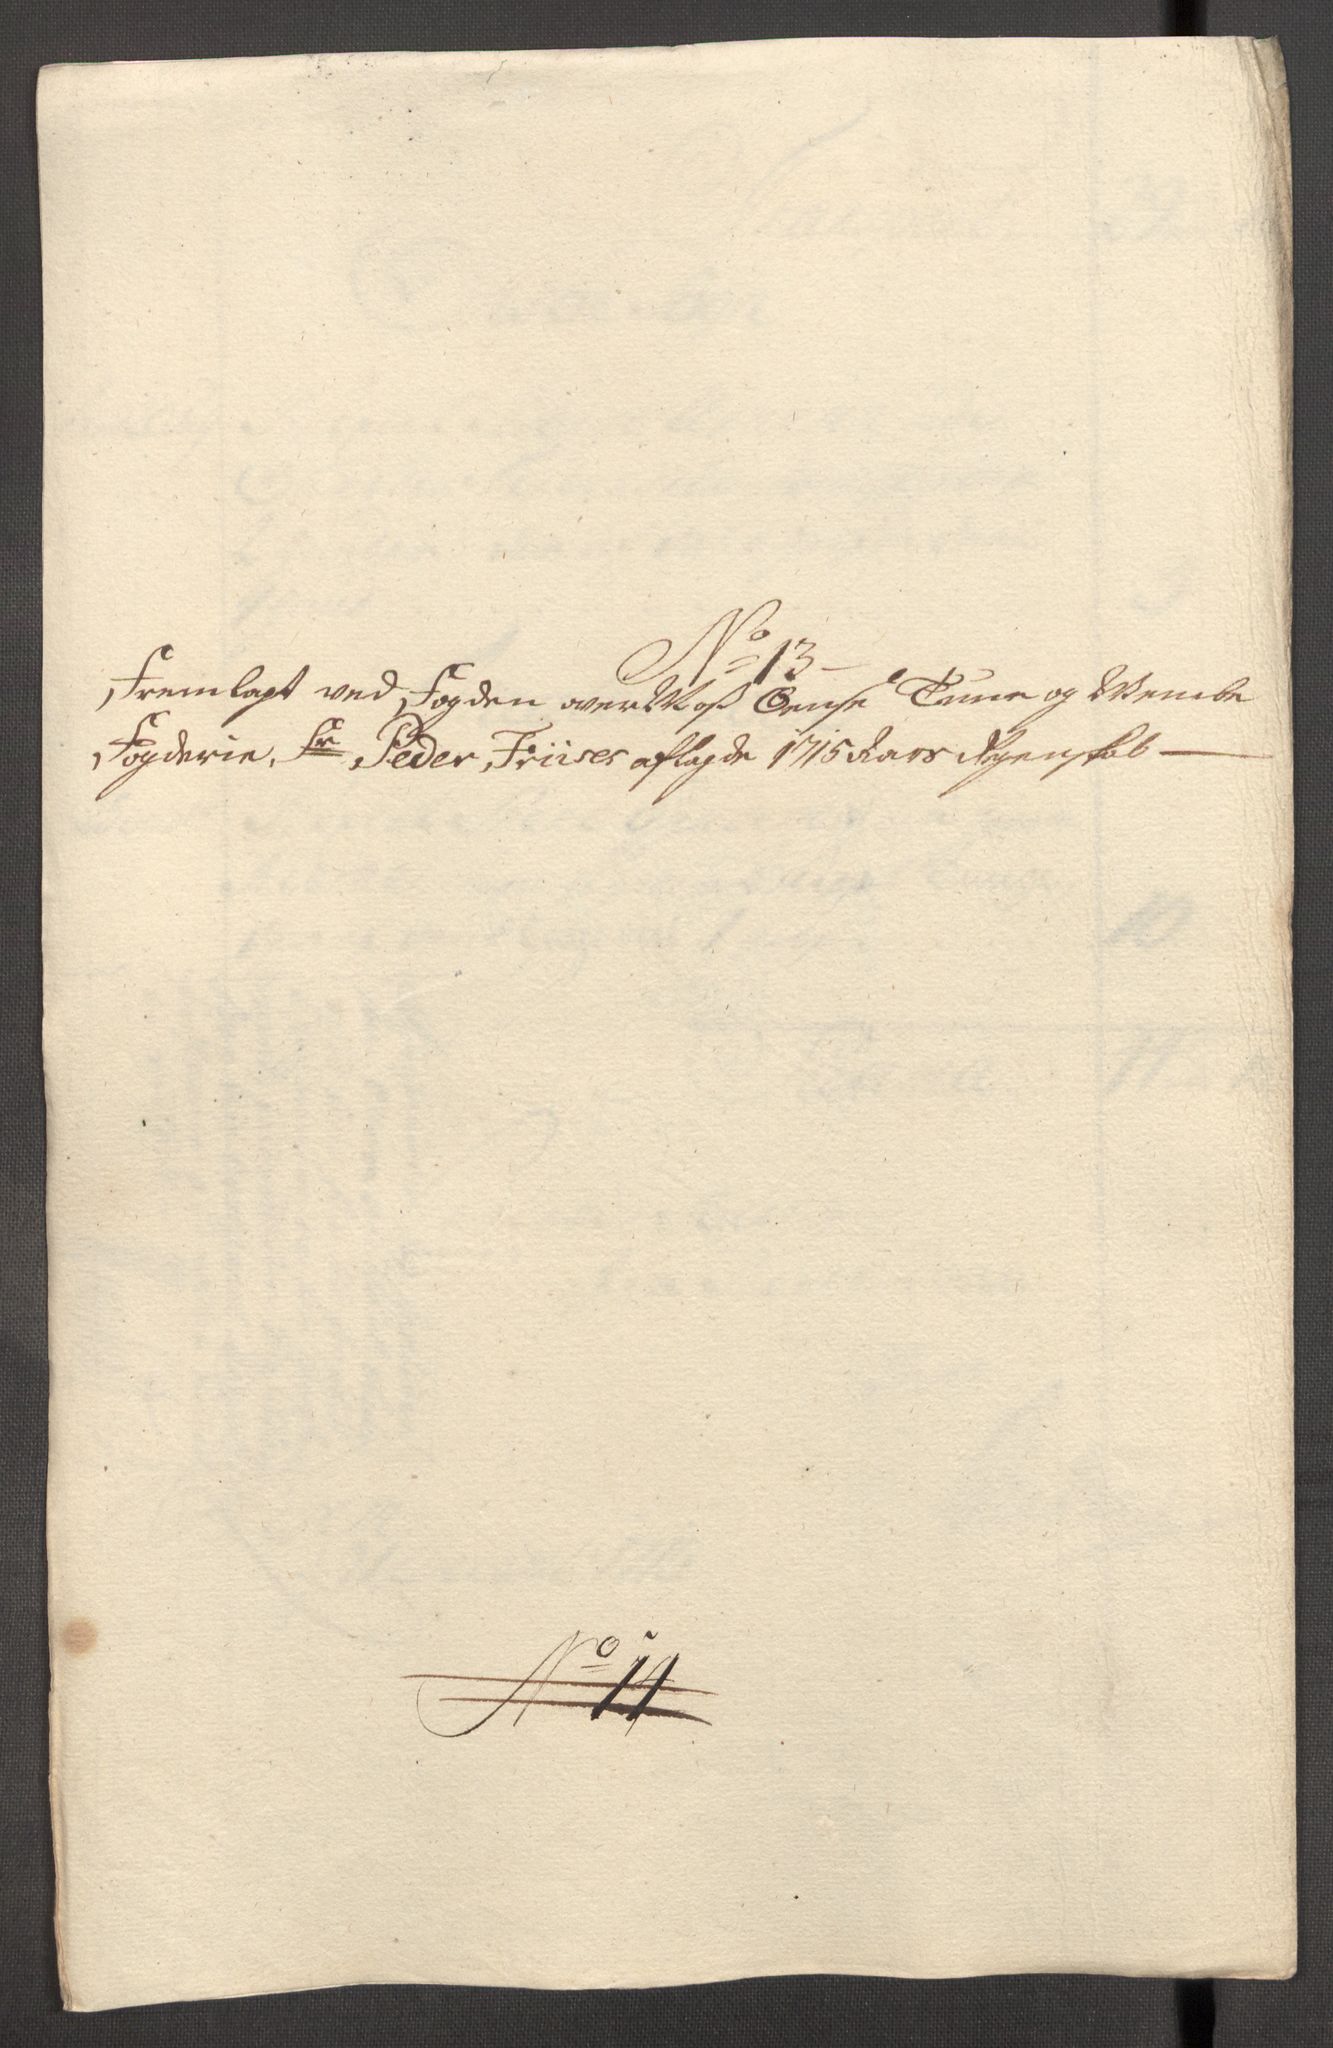 No 13
Fremlagt ved Fogden over Moss Tune og Wemble
Fogderie, Sr Peder Friises aflagde 1715 Aars Regenskab
No 14